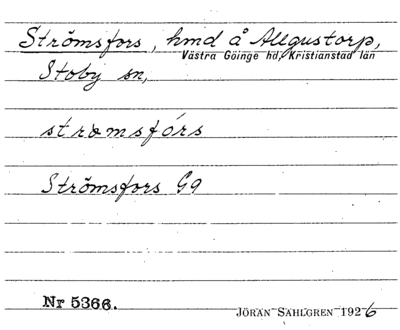 Strömsfors, hmd å Allgustorp,
Västra Göinge hd, Kristianstad län
Stoby sn,
strœmsfórs
Strömsfors G9
Nr 5366.
JÖRAN SAHLGREN 1926